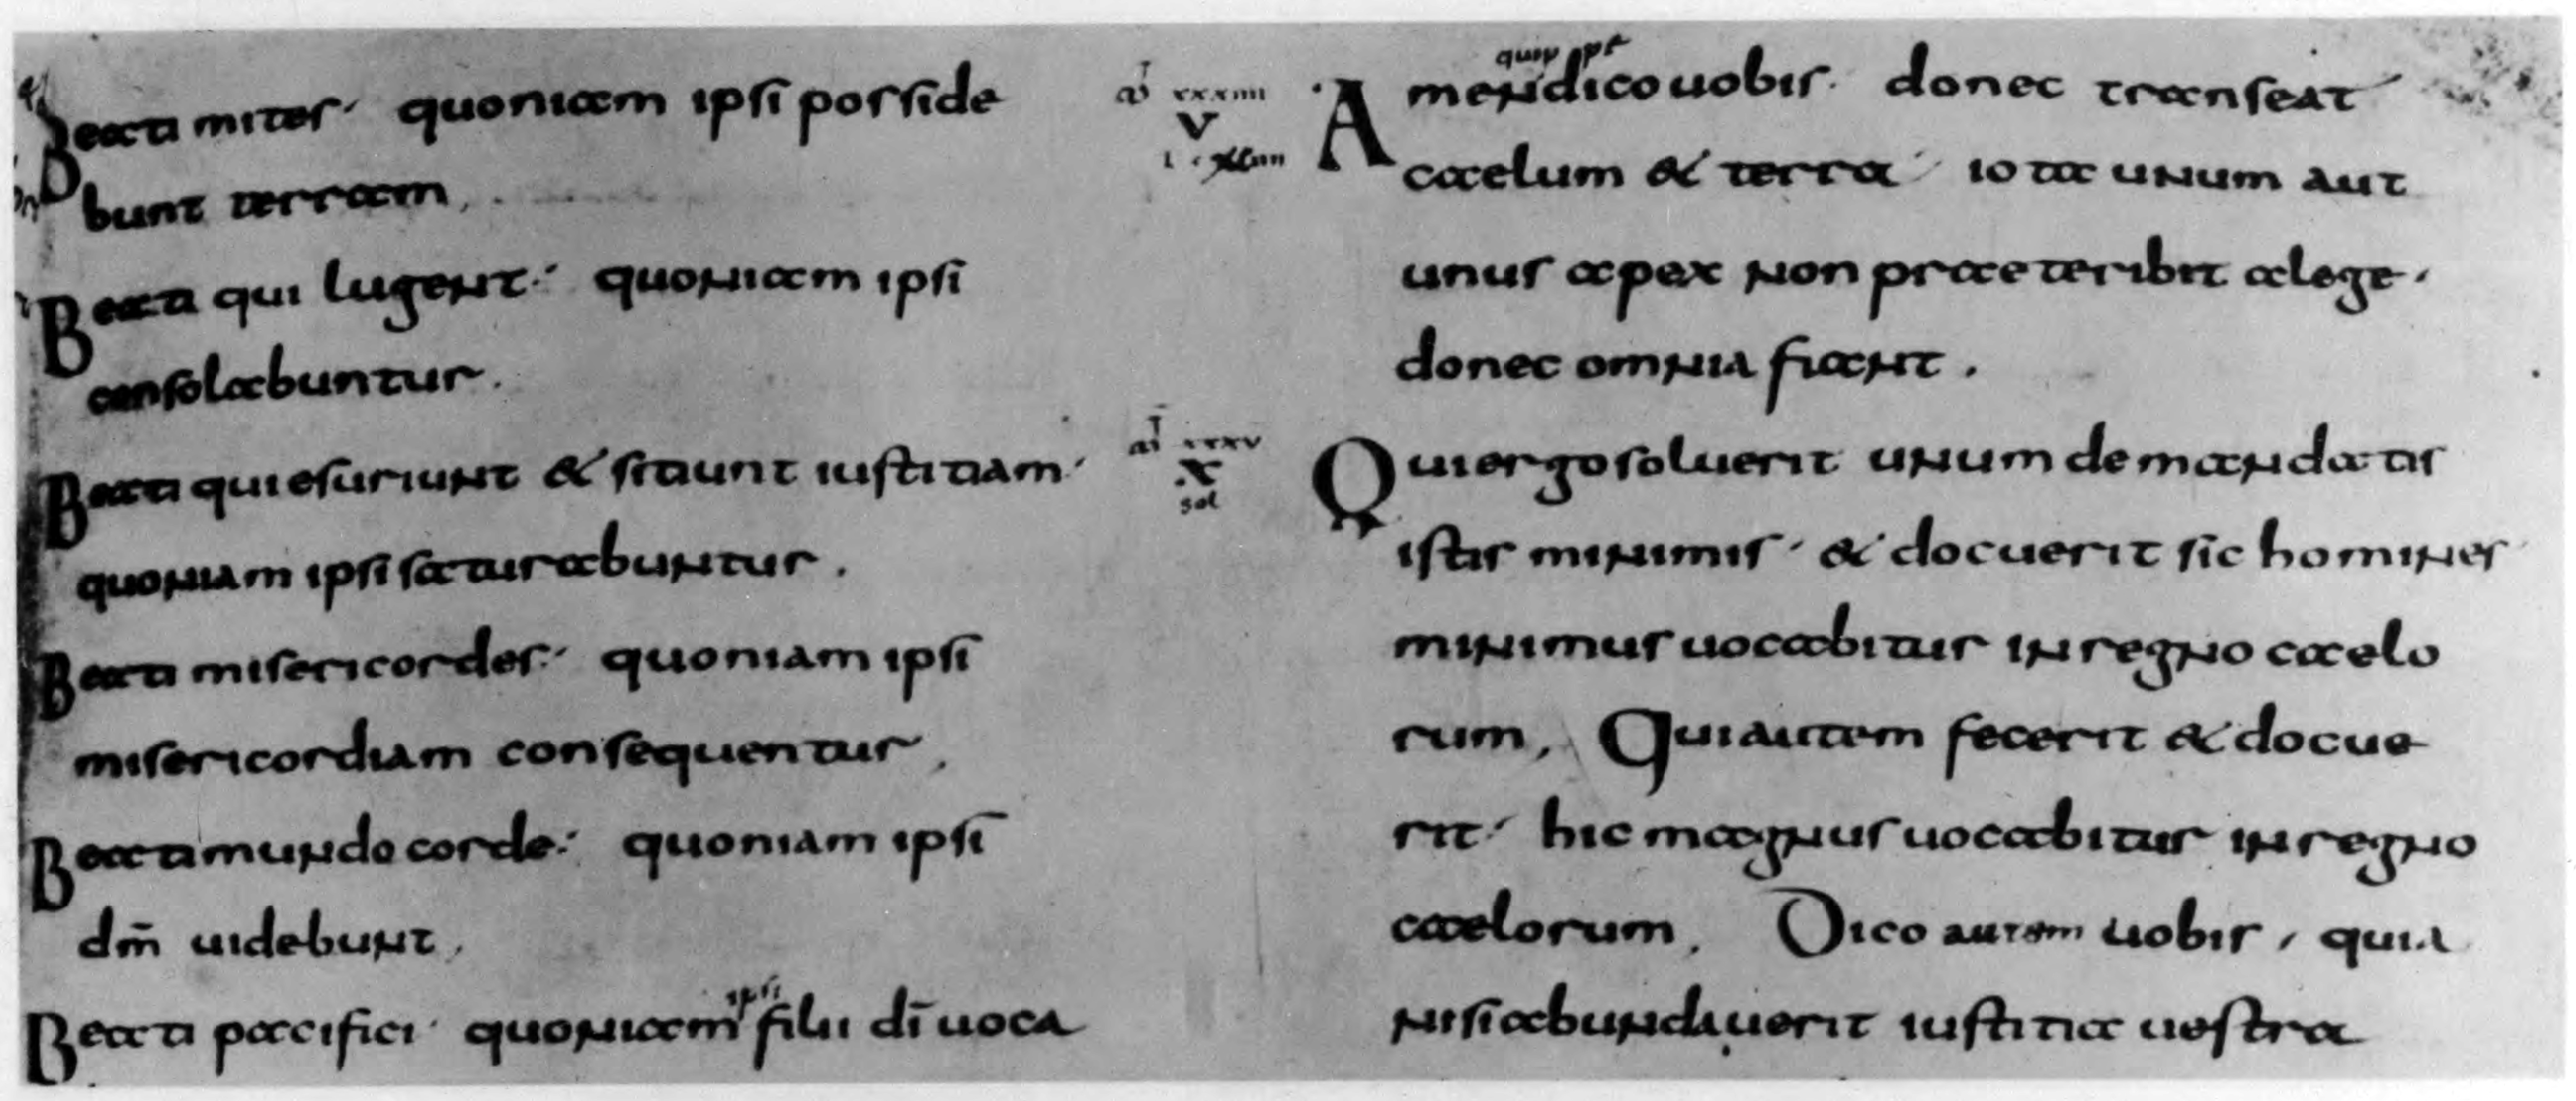 Beati mites· quoniam ipsi posside
bunt terram,
Beati qui lugent· quoniam ipsi
consolabuntur.
Beati qui esuriunt & sitiunt iustitiam·
quoniam ipsi saturabuntur.
Beati misericordes· quoniam ipsi
misericordiam consequentur,
Beati mundo corde· quoniam ipsi
dm̄ uidebunt,
ipsi
Beati pacifici· quoniam filii dī uoca
xxxiiii
V
Amen dico uobis· donec transeat
caelum & terra· iota unum aut
unus apex non praeteribit a lege·
donec omnia fiant.
xxxv
X
sol
Qui ergo soluerit unum de mandatis
istis minimis· & docuerit sic homines
minimus uocabitur in regno caelo
rum, Qui autem fecerit & docue
rit· hic magnus uocabitur in regno
caelorum, Dico autem uobis, quia
nisi abundauerit iustitia uestra